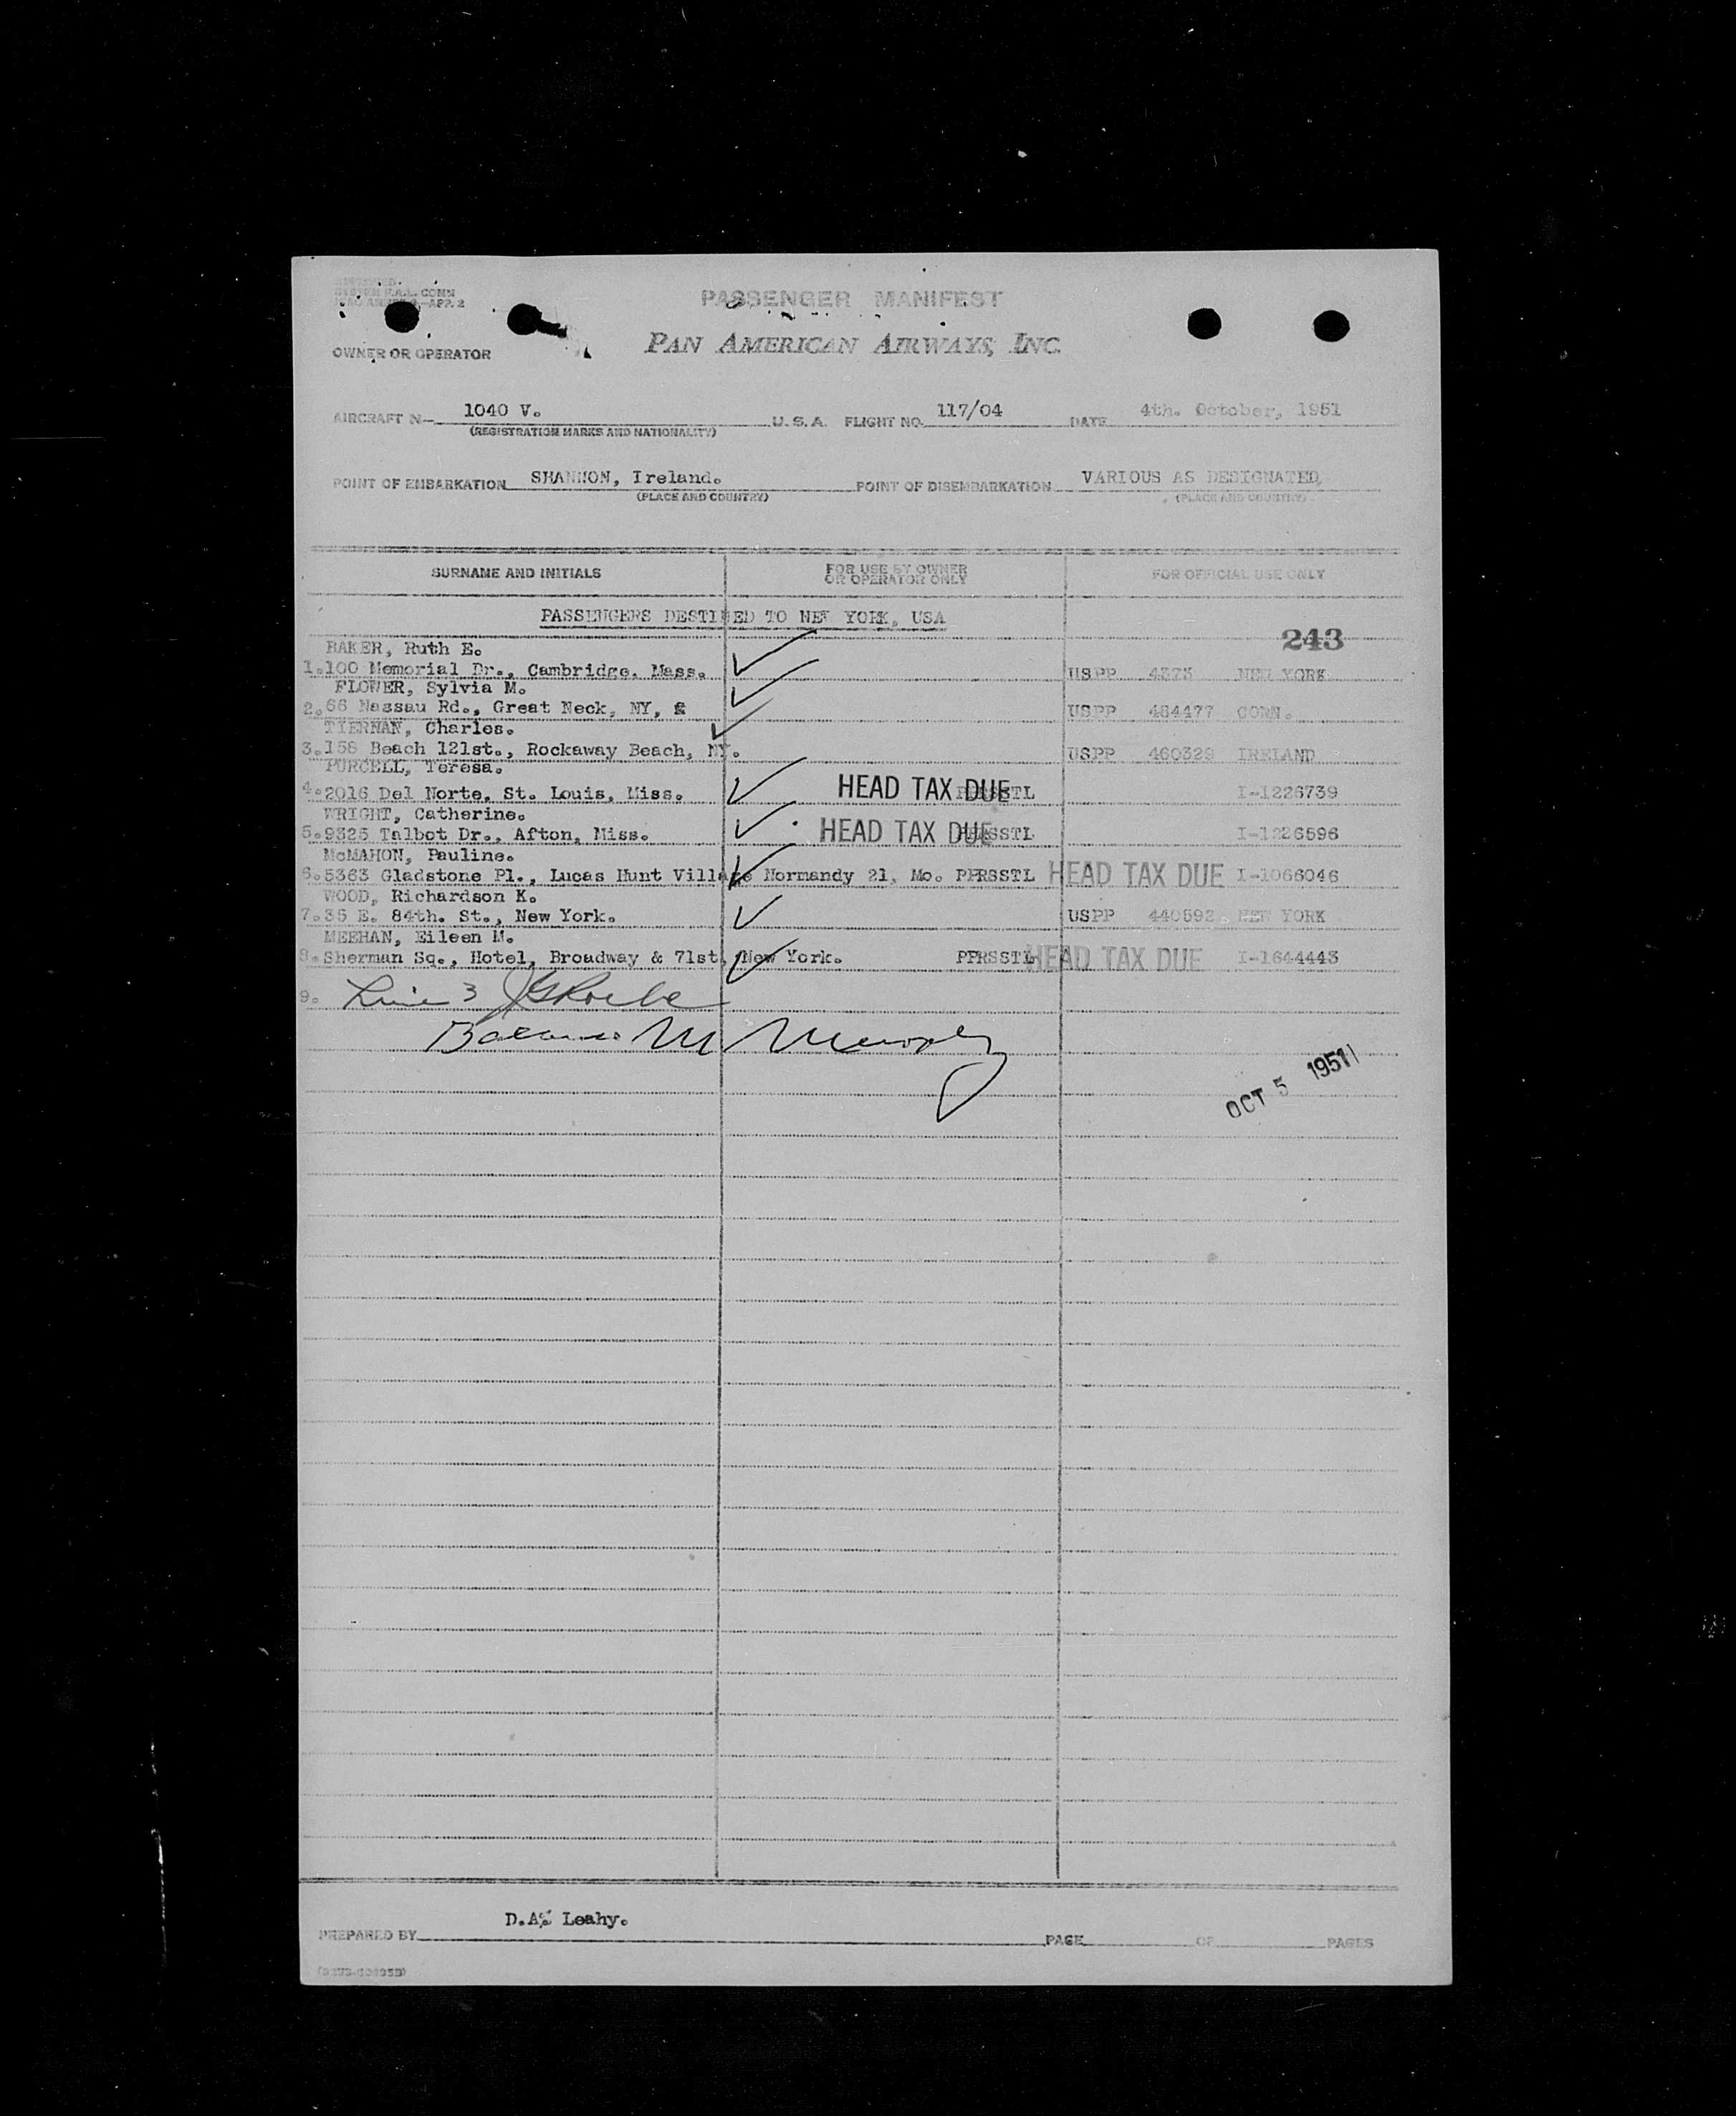 PASSENGER MANIFEST
COMM
APP. 2
PAN AMERICAN AIRWAYS, INC.
OWNER OR OPERATOR
AIRCRAFT N— 1040 V. U. S. A. FLIGHT NO. 117/04 DATE 4th. October, 1951
(REGISTRATION MARKS AND NATIONALITY)
POINT OF EMBARKATION SHANNON, Ireland. POINT OF DISEMBARKATION VARIOUS AS DESIGNATED
(PLACE AND COUNTRY) (PLACE AND COUNTRY)
SURNAME AND INITIALS FOR USE BY OWNER OR OPERATOR ONLY FOR OFFICIAL USE ONLY
PASSENGERS DESTINED TO NEW YORK, USA
243
BAKER, Ruth E.
1. 100 Memorial Dr., Cambridge. Mass. USPP 4373 NEW YORK
FLOWER, Sylvia M.
2. 66 Nassau Rd., Great Neck, NY, USPP 484477 CONN.
TIERNAN, Charles.
3. 158 Beach 121st., Rockaway Beach, NY. USPP 460329 IRELAND
PURCELL, Teresa.
4. 2016 Del Norte, St. Louis, Miss. HEAD TAX DUE PPRSSTL I-1226739
WRIGHT, Catherine.
5. 9325 Talbot Dr., Afton, Miss. HEAD TAX DUE PPRSSTL I-1226596
McMAHON, Pauline.
6. 5363 Gladstone Pl., Lucas Hunt Village Normandy 21, Mo. PPRSSTL HEAD TAX DUE I-1066046
WOOD, Richardson K.
7. 35 E. 84th. St., New York. USPP 440592 NEW YORK
MEEHAN, Eileen M.
8. Sherman Sq., Hotel, Broadway & 71st, New York. PPRSSTL HEAD TAX DUE I-1644443
9. Line 3
Balance M Murphy
OCT 5 1951
D.A. Leahy.
PREPARED BY PAGE OF PAGES